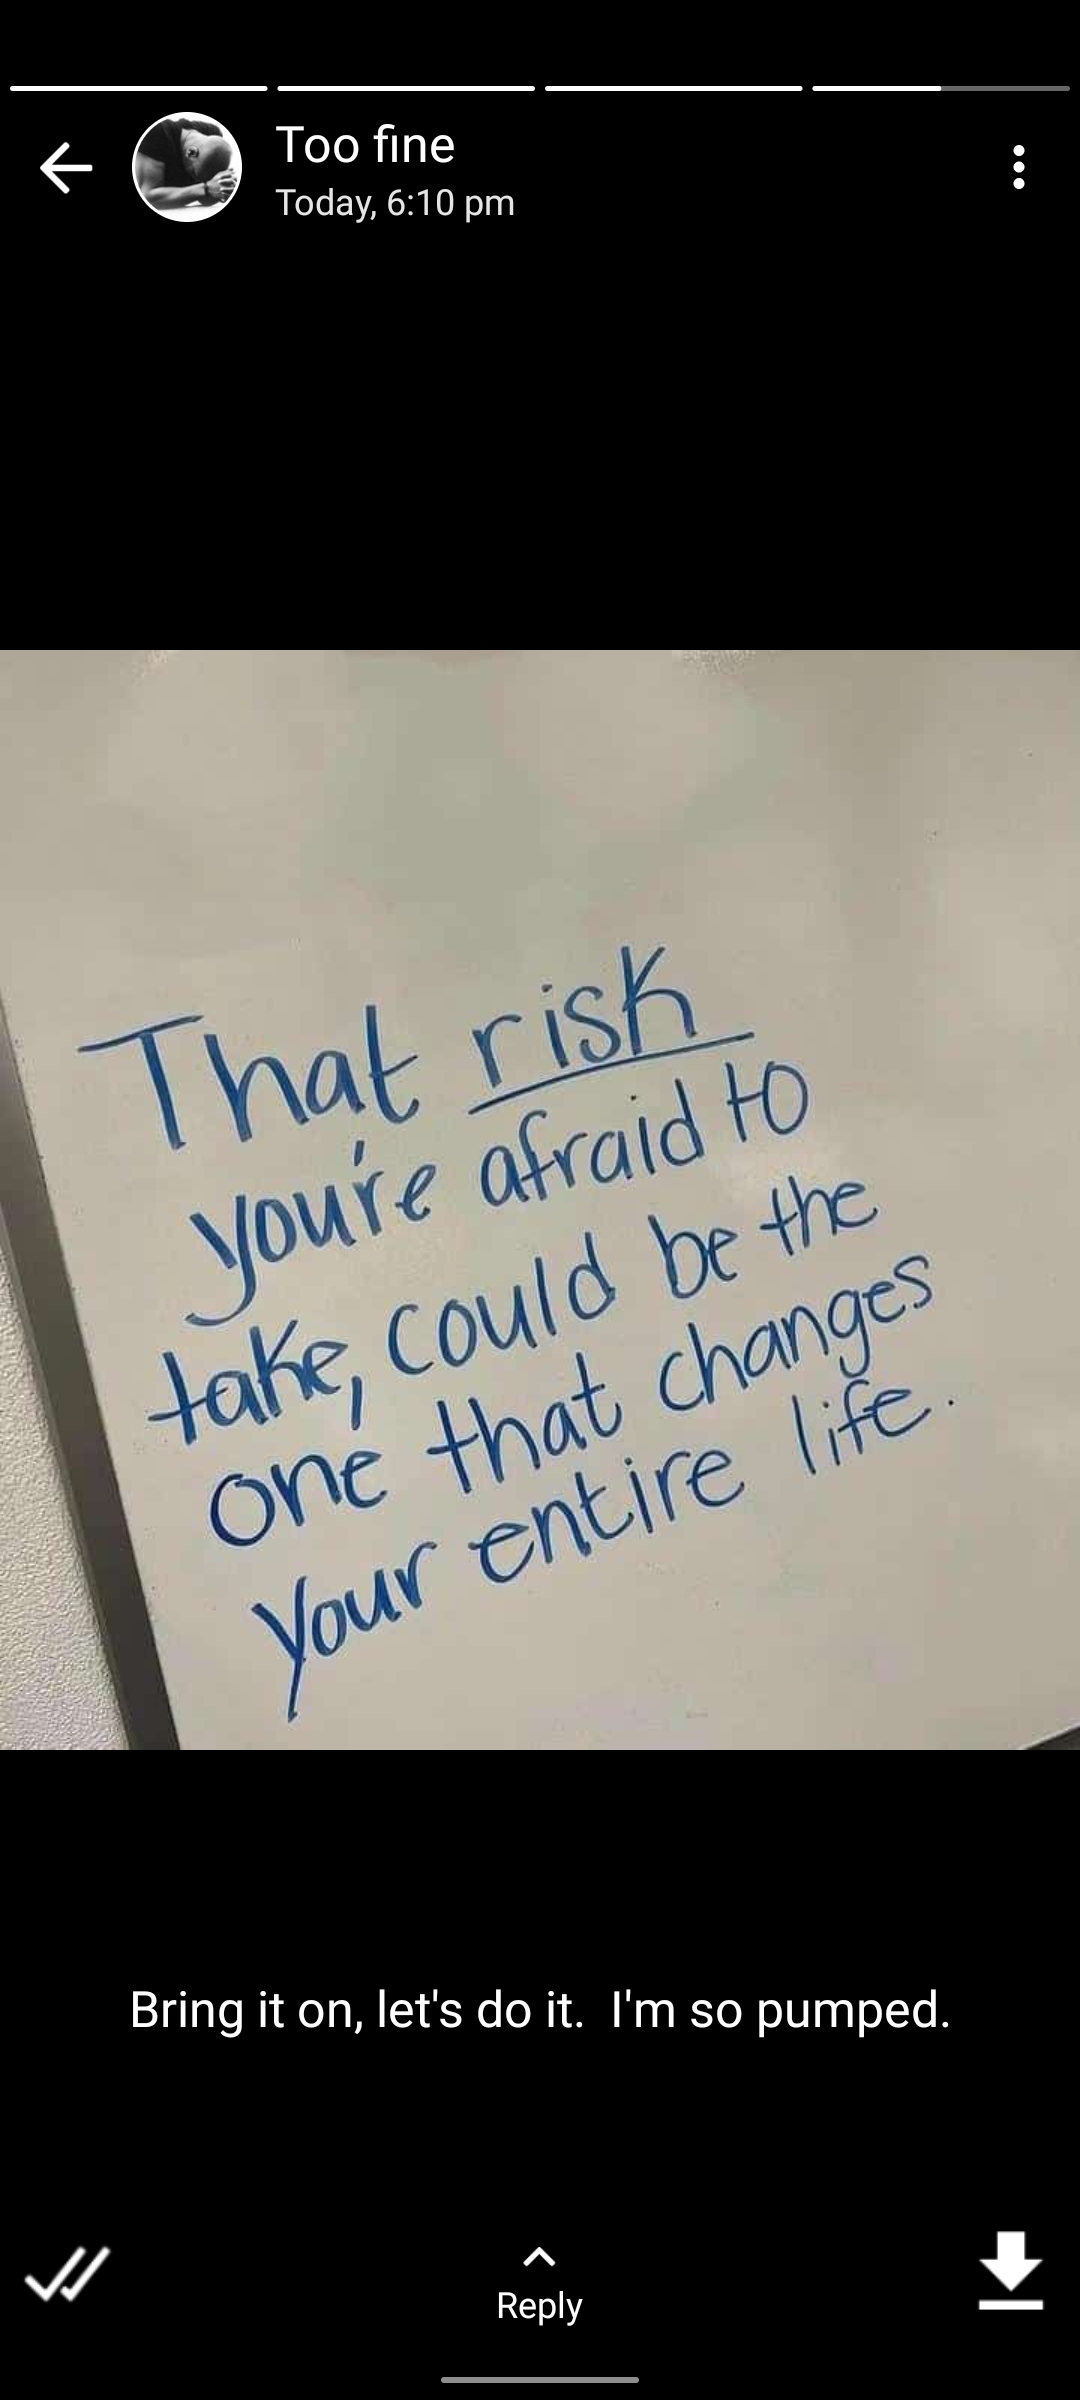 Too fine
Today, 6:10 pm
That risk
you're afraid to
take, could be the
one that changes
your entire life.
Bring it on, let's do it.  I'm so pumped.
Reply